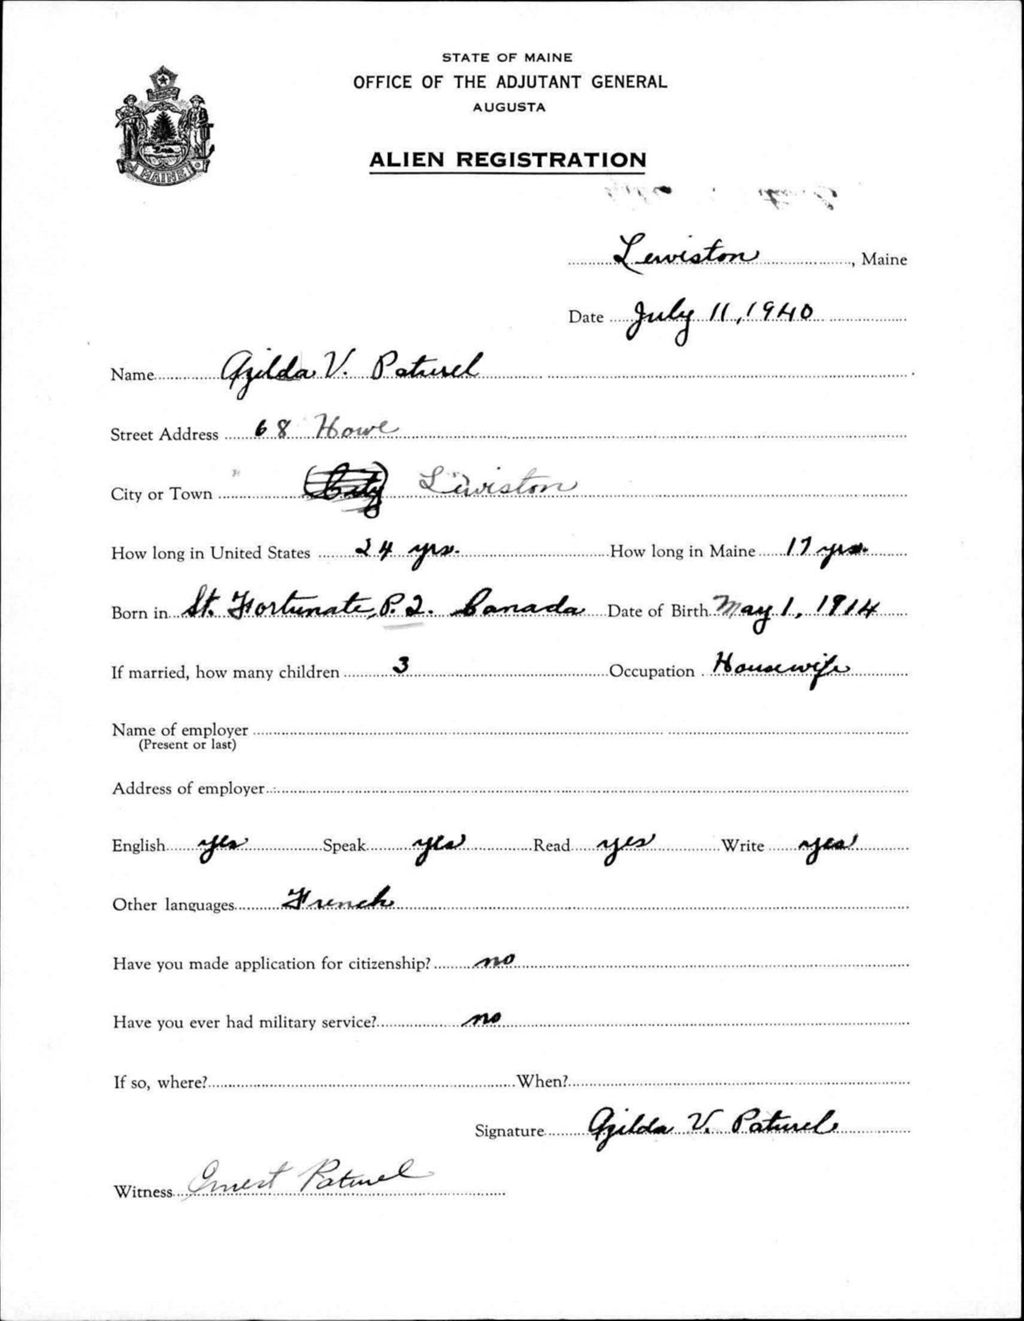 STATE OF MAINE
OFFICE OF THE ADJUTANT GENERAL
AUGUSTA
ALIEN REGISTRATION
MAINE
Lewiston, Maine
Date July 11, 1940
Name Azilda V. Paturel
Street Address 68 Howe
City or Town (City) Lewiston
How long in United States 24 yrs. How long in Maine 17 yrs.
Born in St. Fortunate, P.Q. Canada Date of Birth May 1, 1914
If married, how many children 3 Occupation Housewife
Name of employer
(Present or last)
Address of employer
English yes Speak yes Read yes Write yes
Other languages French
Have you made application for citizenship? no
Have you ever had military service? no
If so, where? When?
Signature Azilda V. Paturel
Witness Ernest Paturel